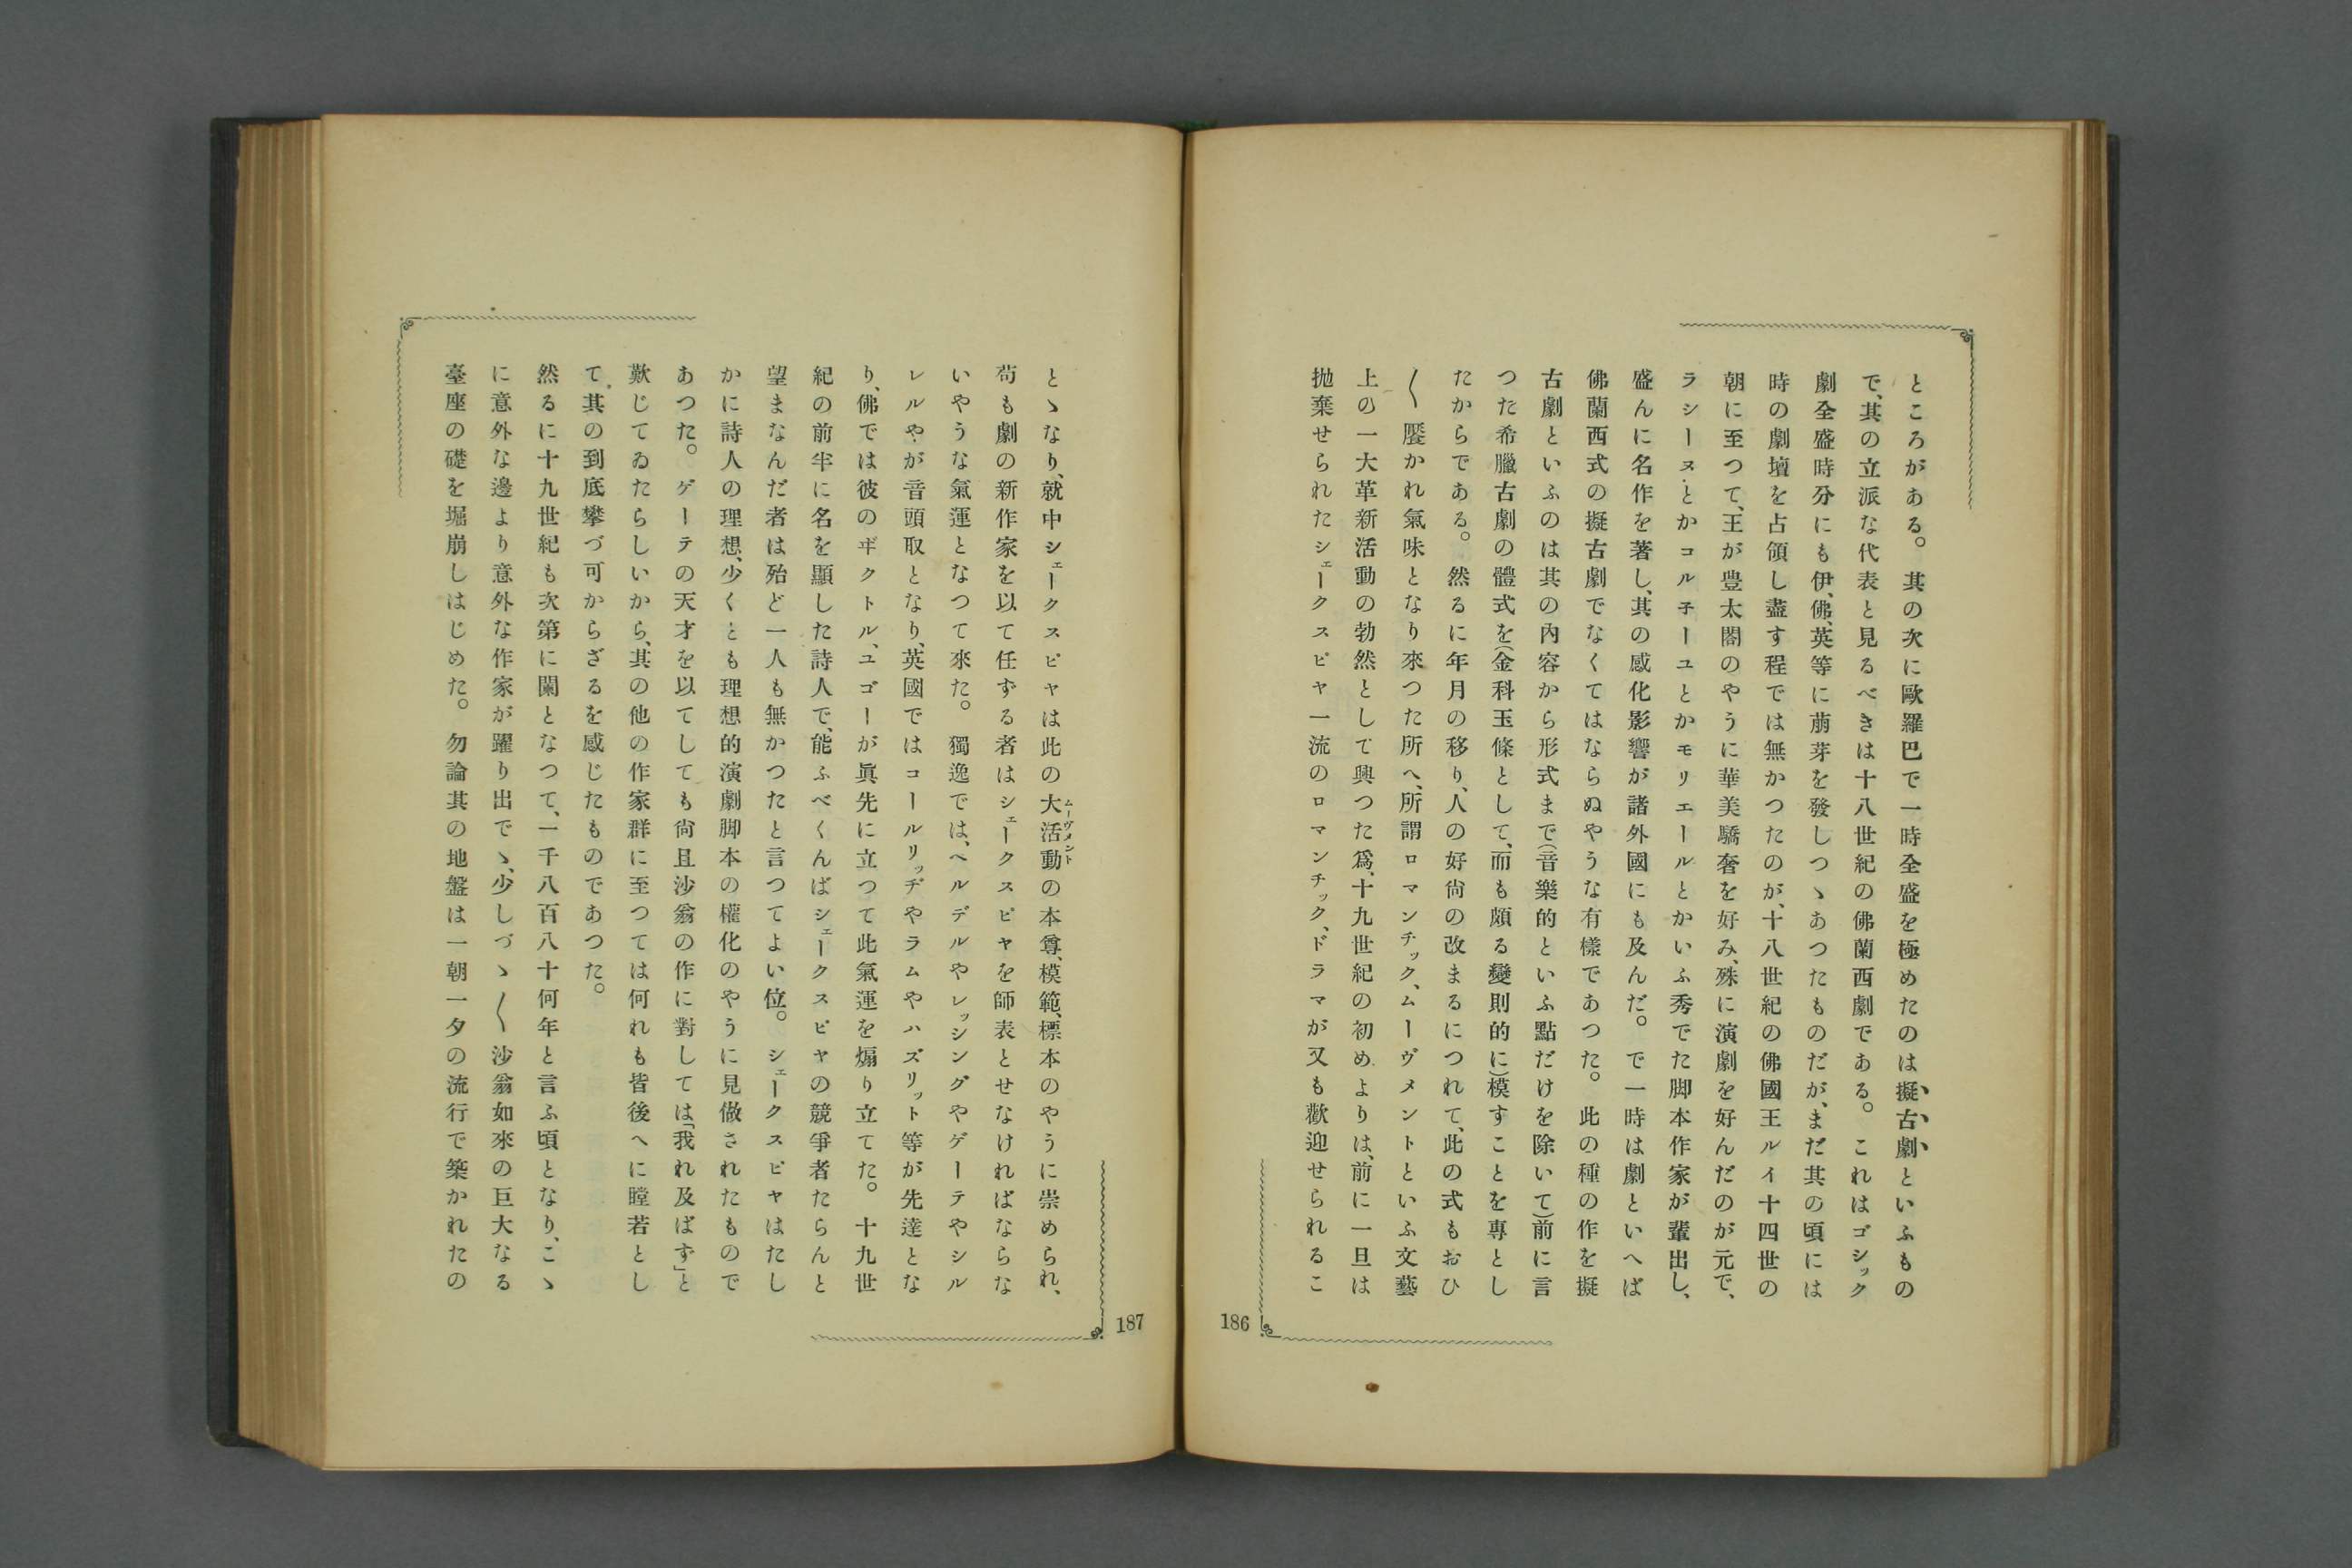 ところがある。其の次に歐羅巴で一時全盛を極めたのは擬古劇といふもの
で、其の立派な代表と見るべきは十八世紀の佛蘭西劇である。これはゴシック
劇全盛時分にも伊、佛、英等に萠芽を發しつゝあつたものだが、まだ其の頃には
時の劇壇を占領し盡す程では無かつたのが、十八世紀の佛國王ルイ十四世の
朝に至つて、王が豊太閤のやうに華美驕奢を好み、殊に演劇を好んだのが元で、
ラシーヌとかコルネーユとかモリエールとかいふ秀でた脚本作家が輩出し、
盛んに名作を著し、其の感化影響が諸外國にも及んだ。で一時は劇といへば
佛蘭西式の擬古劇でなくてはならぬやうな有樣であつた。此の種の作を擬
古劇といふのは其の內容から形式まで(音樂的といふ點だけを除いて)前に言
つた希臘古劇の體式を(金科玉條として、而も頗る變則的に)模すことを專とし
たからである。然るに年月の移り、人の好尙の改まるにつれて、此の式もおひ
〱饜かれ氣味となり來つた所へ、所謂ロマンチック、ムーヴメントといふ文藝
上の一大革新活動の勃然として興つた爲、十九世紀の初めよりは、前に一旦は
抛棄せられたシェークスピヤ一流のロマンチック、ドラマが又も歡迎せられるこ
186
とゝなり、就中シェークスピヤは此の大活動の本尊、模範、標本のやうに崇められ、
ムーヴメント
苟も劇の新作家を以て任ずる者はシェークスピヤを師表とせなければならな
いやうな氣運となつて來た。獨逸では、ヘルデルやレッシングやゲーテやシル
レルやが音頭取となり、英國ではコールリッヂやラムやハズリット等が先達とな
り、佛では彼のヰクトル、ユゴーが眞先に立つて此氣運を煽り立てた。十九世
紀の前半に名を顯した詩人で、能ふべくんばシェークスピヤの競爭者たらんと
望まなんだ者は殆ど一人も無かつたと言つてよい位。シェークスピヤはたし
かに詩人の理想、少くとも理想的演劇脚本の權化のやうに見做されたもので
あつた。ゲーテの天才を以てしても尙且沙翁の作に對しては「我れ及ばず」と
歎じてゐたらしいから、其の他の作家群に至つては何れも皆後へに瞠若とし
て其の到底攀づ可からざるを感じたものであつた。
然るに十九世紀も次第に闌となつて、一千八百八十何年と言ふ頃となり、こゝ
に意外な邊より意外な作家が躍り出でゝ、少しづゝ〱沙翁如來の巨大なる
臺座の礎を堀崩しはじめた。勿論其の地盤は一朝一夕の流行で築かれたの
187